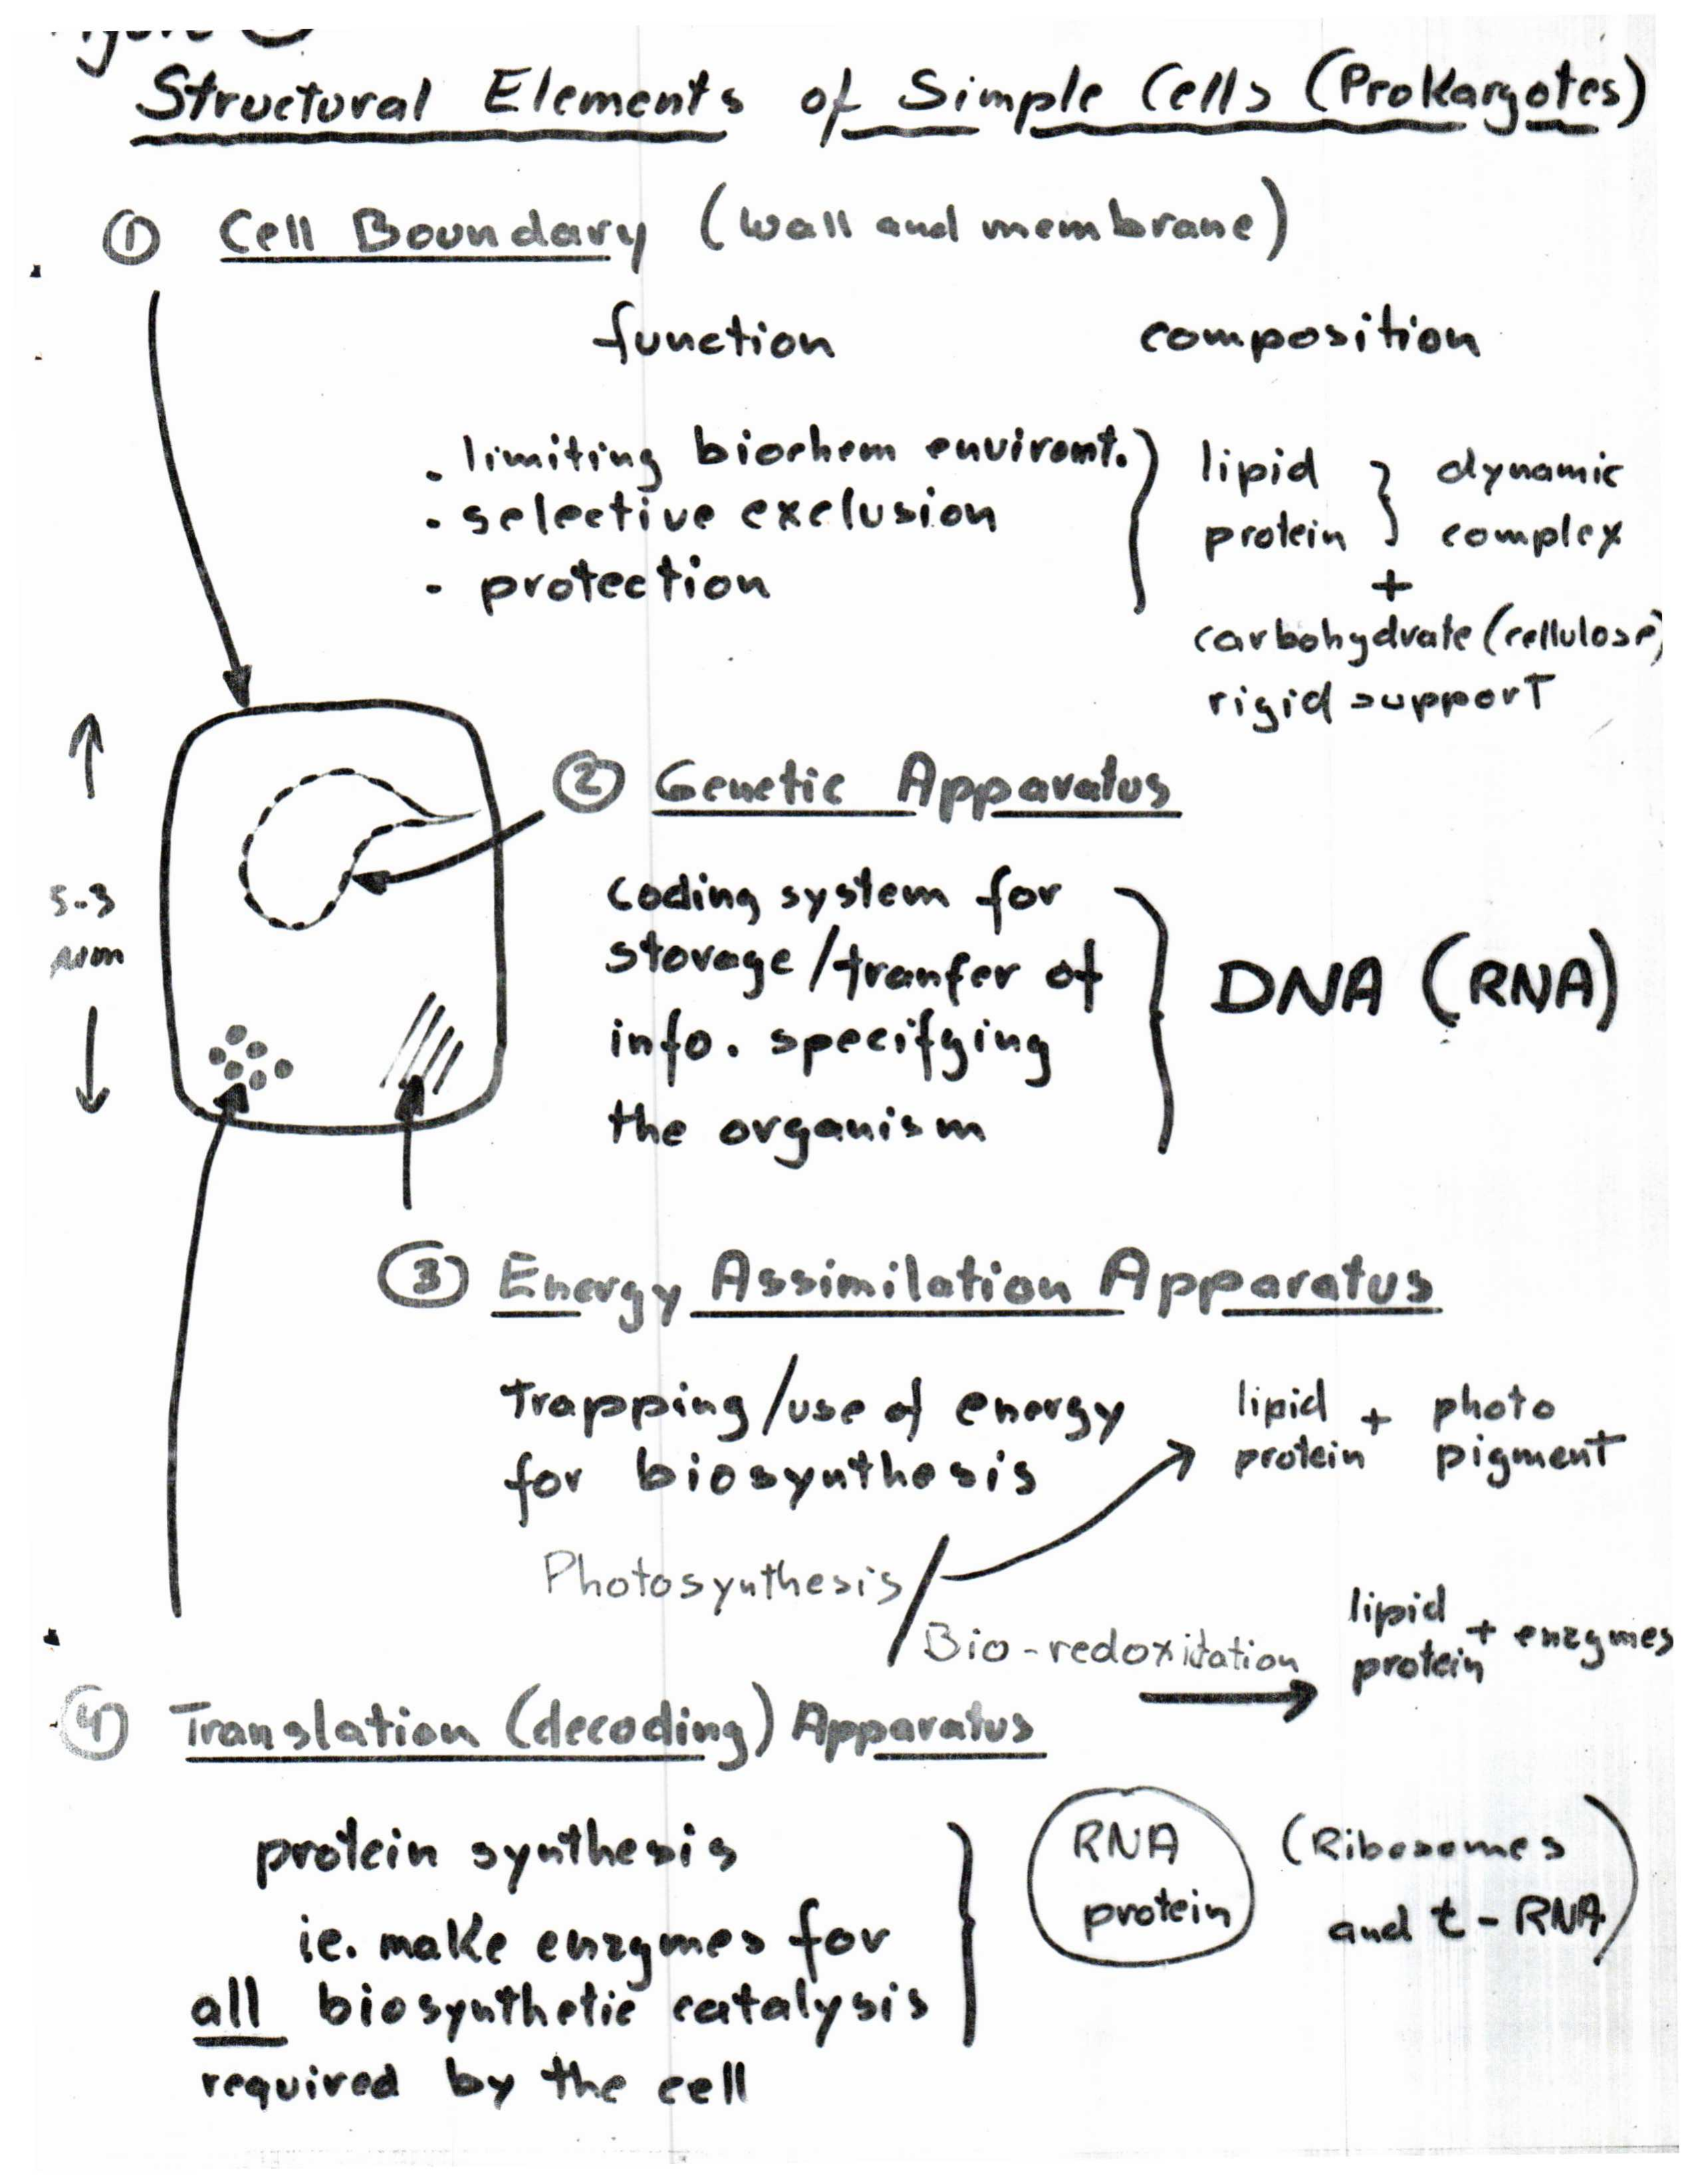 Figure
Structural Elements of Simple Cells (Prokaryotes)
① Cell Boundary (wall and membrane)
function composition
. limiting biochem environt.
. selective exclusion
- protection
lipid } dynamic
protein } complex
+
carbohydrate (cellulose)
rigid support
② Genetic Apparatus
coding system for
storage/tranfer of
info. specifying
the organism
DNA (RNA)
③ Energy Assimilation Apparatus
Trapping/use of energy
for biosynthesis
lipid + photo
protein pigment
Photosynthesis/
Bio-redoxidation
lipid + enzymes
protein
④ Translation (decoding) Apparatus
protein synthesis
ie. make enzymes for
all biosynthetic catalysis
required by the cell
RNA
protein
(Ribosomes
and t-RNA)